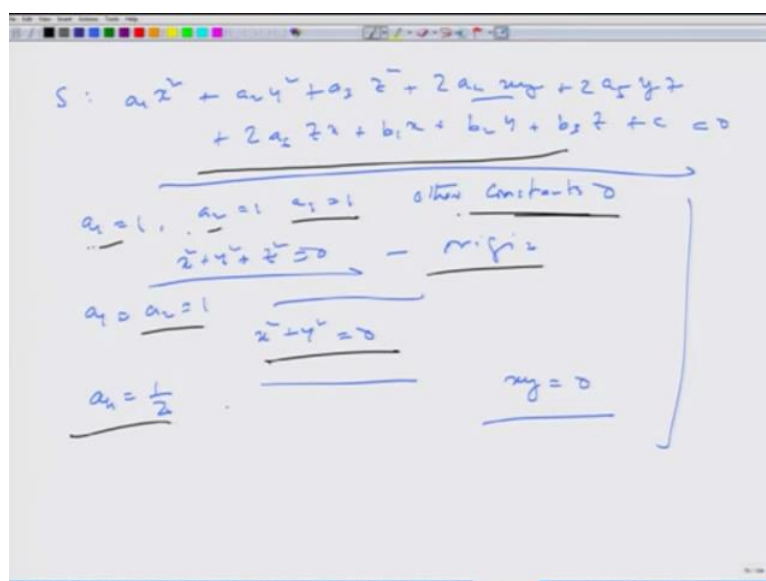 S : a₁x² + a₂y² + a₃z² + 2a₄xy + 2a₅yz
+ 2a₆zx + b₁x + b₂y + b₃z + c = 0
a₁ = 1, a₂ = 1 a₃ = 1 other constants 0
x² + y² + z² = 0 – origin
a₁ = a₂ = 1
x² + y² = 0
a₄ = 1/2 xy = 0